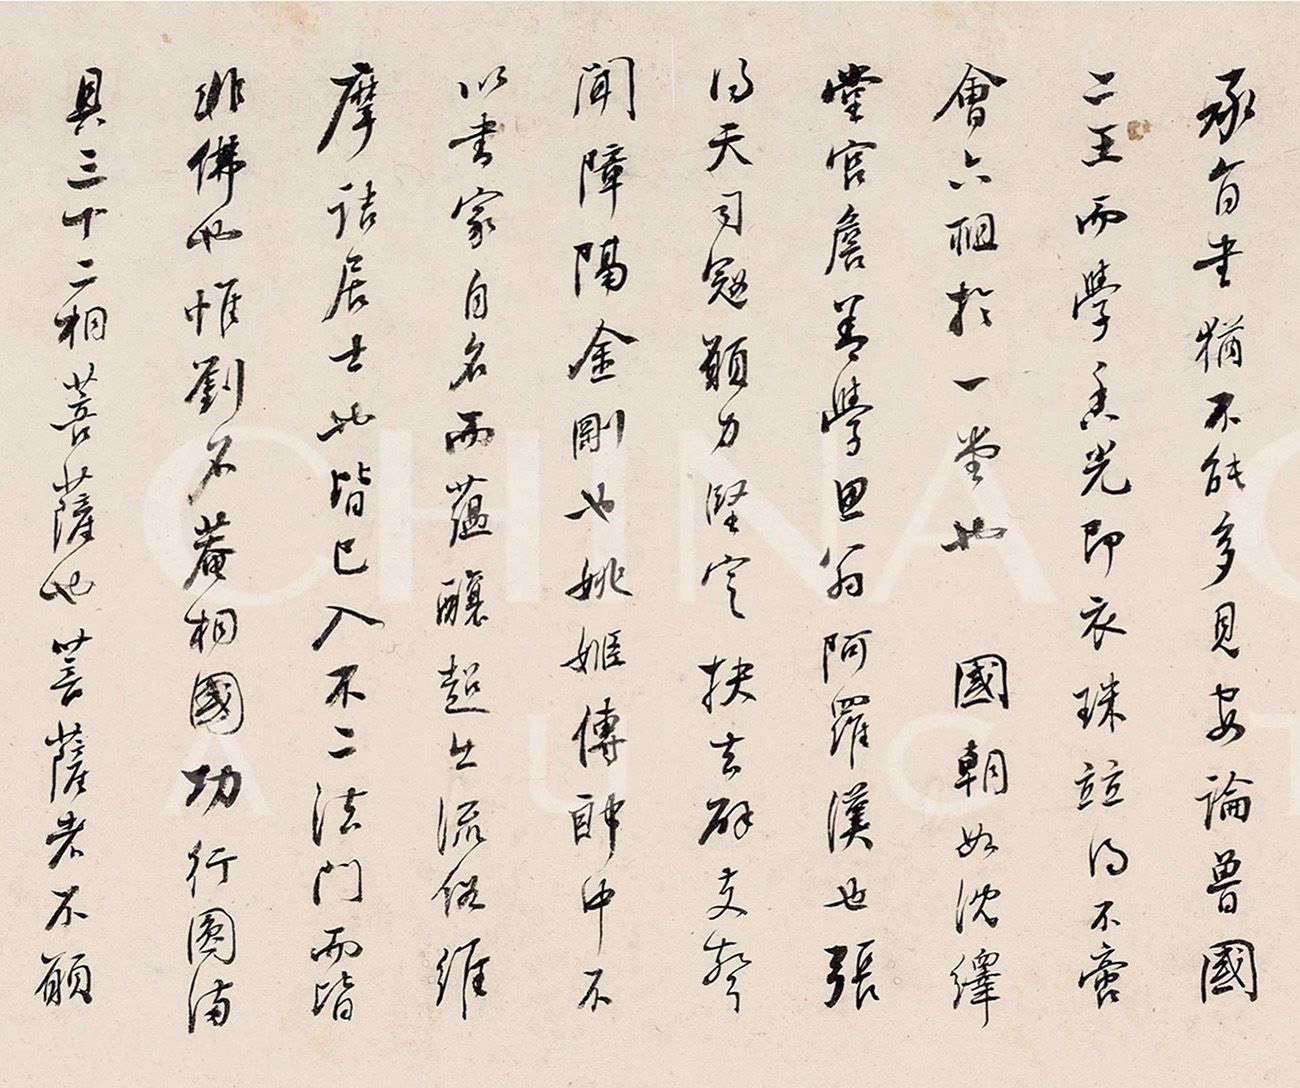 承旨书猶不能多見安論魯國
二王而學香光即衣珠竝得不啻
會六祖於一堂也 國朝如沈繹
堂官詹善學思翁阿羅漢也張
得天司寇願力堅定抉去辟支聲
聞障隔金剛也姚姬傳郎中不
以書家自名而蘊釀超上流俗維
摩詰居士也皆已入不二法門而皆
非佛也惟劉石菴相國功行圓滿
具三十二相菩薩也菩薩者不願
CHINA